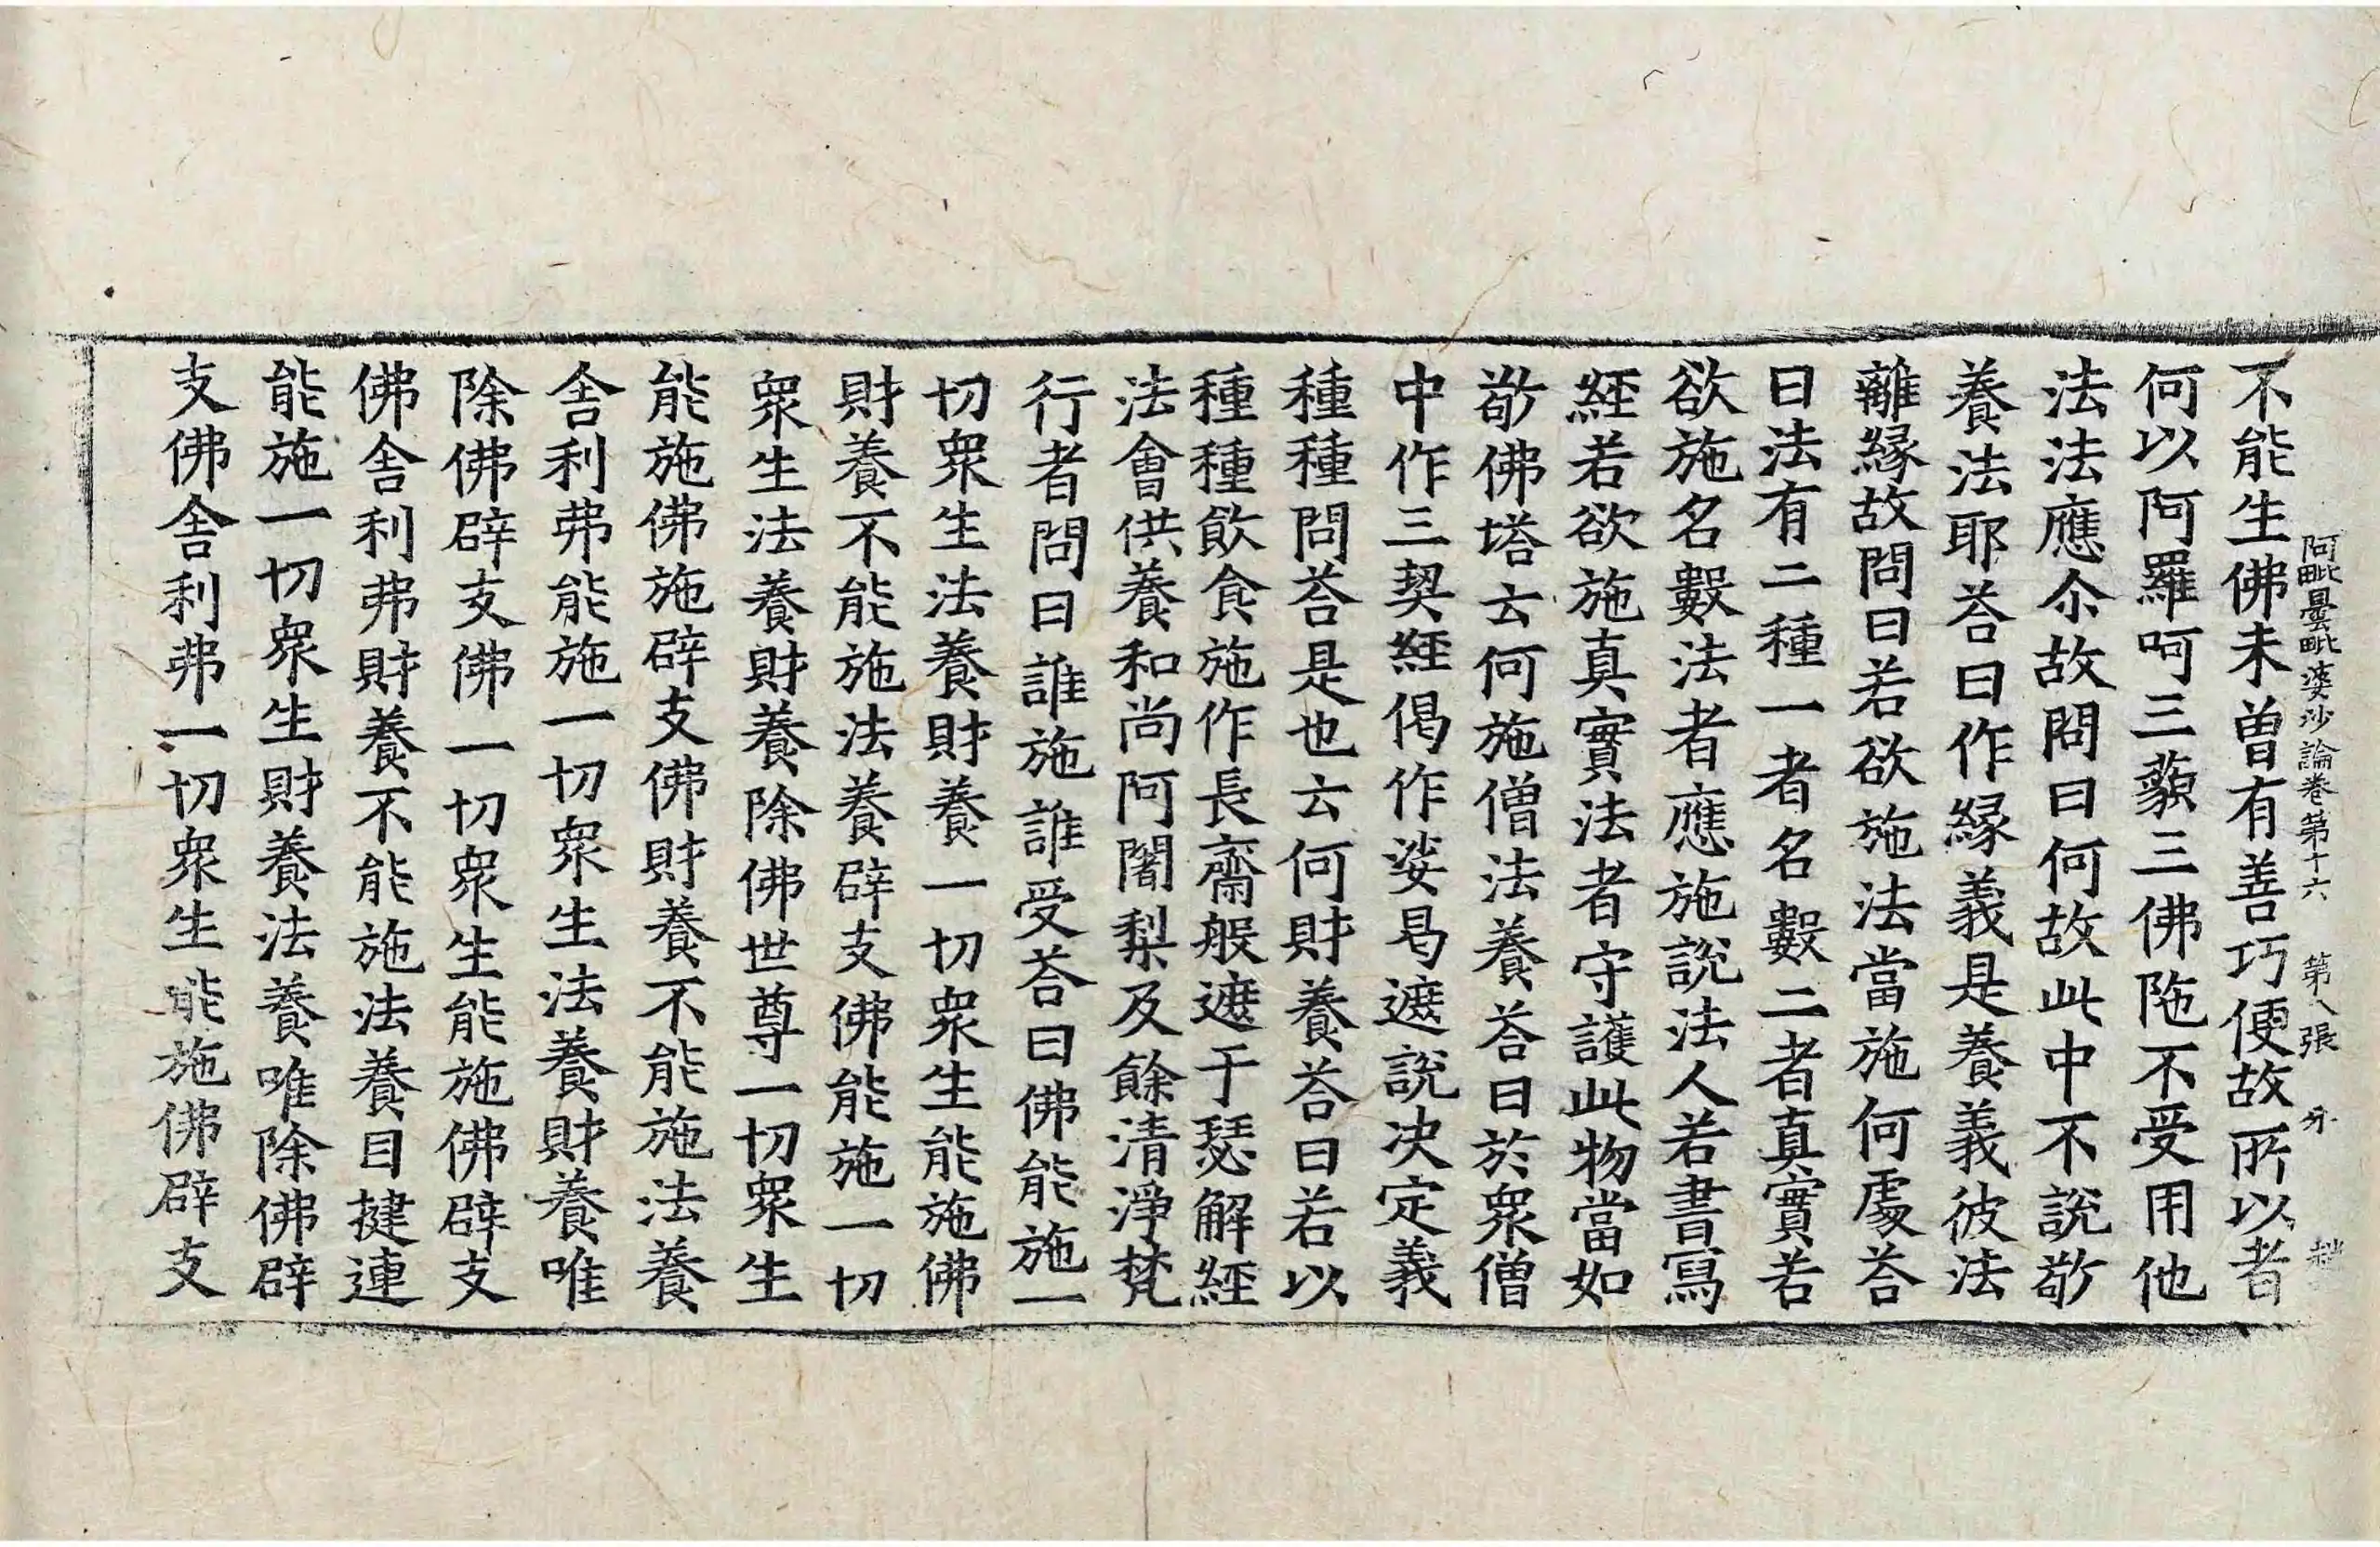 阿毗曇毗婆沙論卷第十六 第八張 㐧
不能生佛未曾有善巧便故所以者
何以阿羅呵三藐三佛陁不受用他
法法應尒故問曰何故此中不說敬
養法耶荅曰作緣義是養義彼法
離緣故問曰若欲施法當施何處荅
曰法有二種一者名數二者真實若
欲施名數法者應施說法人若書寫
經若欲施真實法者守護此物當如
敬佛塔云何施僧法養荅曰於衆僧
中作三契經偈作娑曷遮說决定義
種種問荅是也云何財養荅曰若以
種種飲食施作長齋般遮于瑟解經
法會供養和尚阿闍梨及餘清淨梵
行者問曰誰施誰受荅曰佛能施一
切衆生法養財養一切衆生能施佛
財養不能施法養辟支佛能施一切
衆生法養財養除佛世尊一切衆生
能施佛施辟支佛財養不能施法養
舍利弗能施一切衆生法養財養唯
除佛辟支佛一切衆生能施佛辟支
佛舍利弗財養不能施法養目揵連
能施一切衆生財養法養唯除佛辟
支佛舍利弗一切衆生能施佛辟支